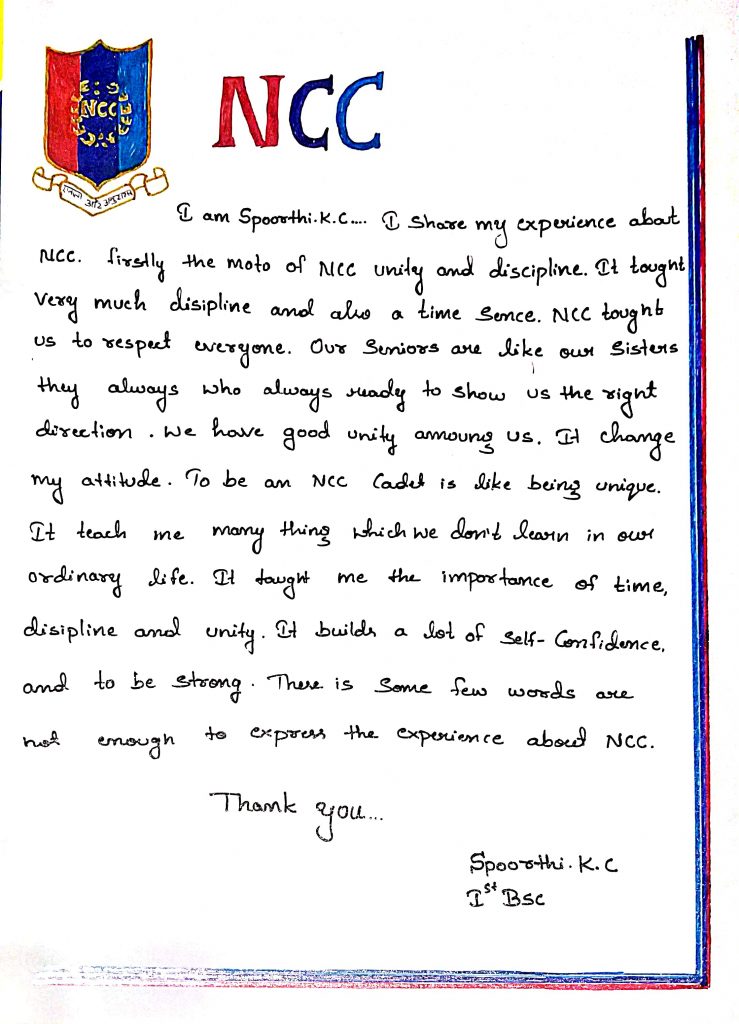 NCC
NCC
एकता और अनुशासन
I am Spoorthi.K.C.... I share my experience about
NCC. firstly the moto of NCC unity and discipline. It tought
very much disipline and also a time sence. NCC tought
us to respect everyone. Our Seniors are like our Sisters
they always who always ready to show us the right
direction. We have good unity amoung us. It change
my attitude. To be an NCC Cadet is like being unique.
It teach me many thing which we don't learn in our
ordinary life. It taught me the importance of time,
disipline and unity. It builds a lot of self-Confidence,
and to be strong. There is some few words are
not enough to express the experience about NCC.
Thank you...
Spoorthi.K.C
Ist BSC